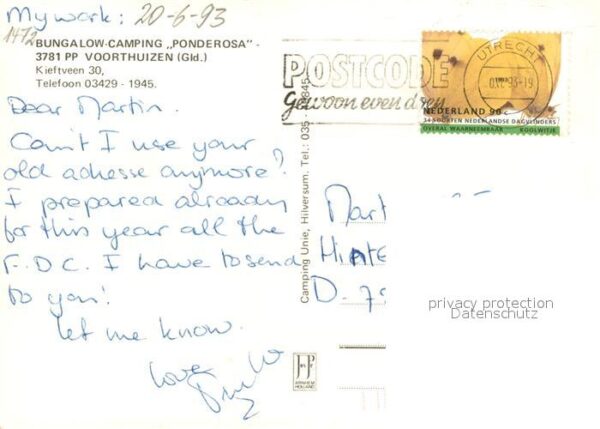 My work: 20-6-93
1472
BUNGALOW-CAMPING „PONDEROSA" -
3781 PP VOORTHUIZEN (Gld.)
Kieftveen 30,
Telefoon 03429 - 1945.
Dear Martin.
Can't I use your
old adresse anymore?
I prepared already
for this year all the
F.D.C. I have to send
to you!
let me know.
love
POSTCODE
Gewoon even doen
UTRECHT
NEDERLAND 90c
54 SOORTEN NEDERLANDSE DAGVLINDERS
OVERAL WAARNEEMBAAR KOOLWITJE
Camping Unie, Hilversum. Tel.: 035 - 
Mart
Hinte
D. 79
privacy protection
Datenschutz
JosP
ARNHEM
HOLLAND